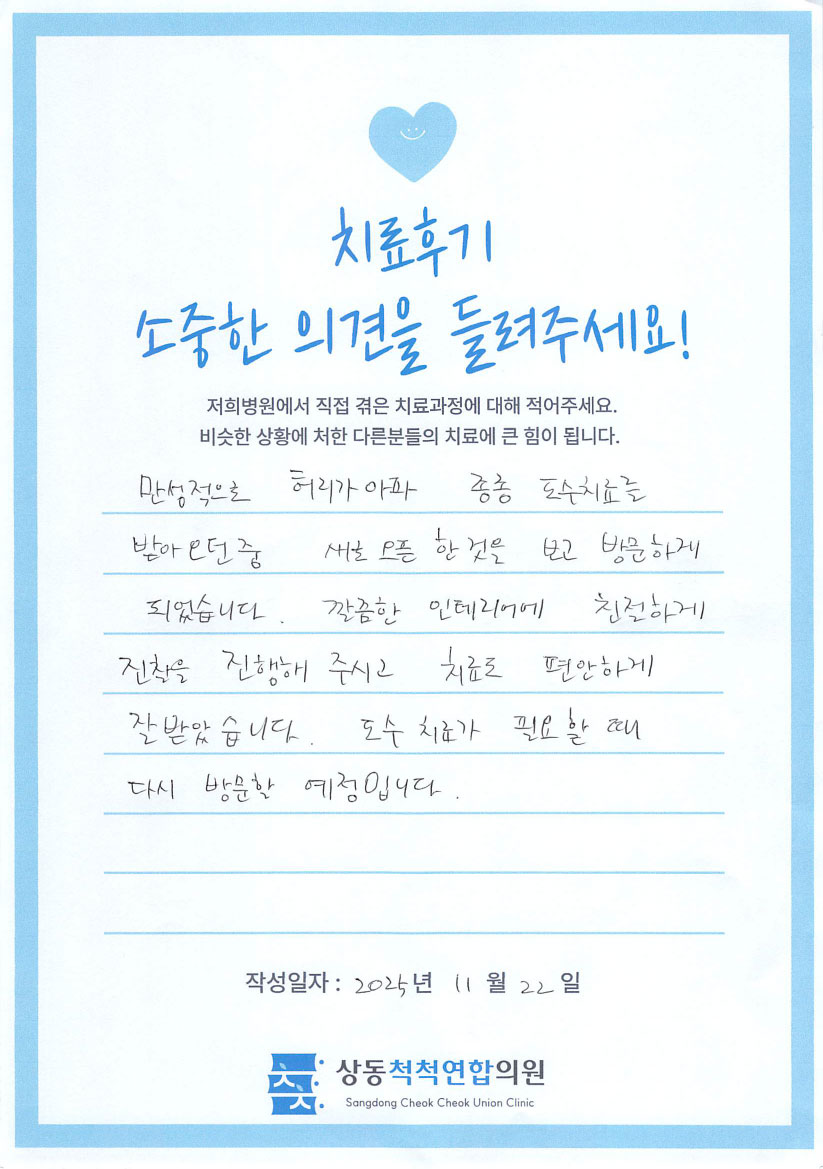 치료후기
소중한 의견을 들려주세요!
저희병원에서 직접 겪은 치료과정에 대해 적어주세요.
비슷한 상황에 처한 다른분들의 치료에 큰 힘이 됩니다.
만성적으로 허리가 아파 종종 도수치료를
받아오던중 새로 오픈 한 것을 보고 방문하게
되었습니다. 깔끔한 인테리어에 친절하게
진찰을 진행해 주시고 치료도 편안하게
잘 받았습니다. 도수 치료가 필요할 때
다시 방문할 예정입니다.
작성일자 : 2025년 11 월 22 일
상동척척연합의원
Sangdong Cheok Cheok Union Clinic